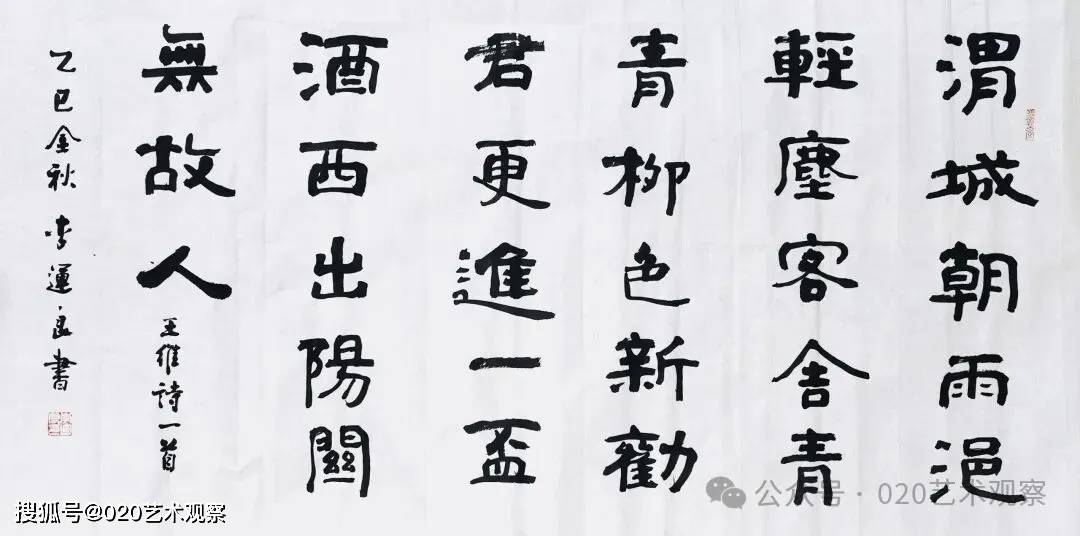 渭城朝雨浥
輕塵客舍青
青柳色新勸
君更進一盃
酒西出陽關
無故人
王維詩一首
乙巳金秋 李運良書
公众号·020艺术观察
搜狐号@020艺术观察